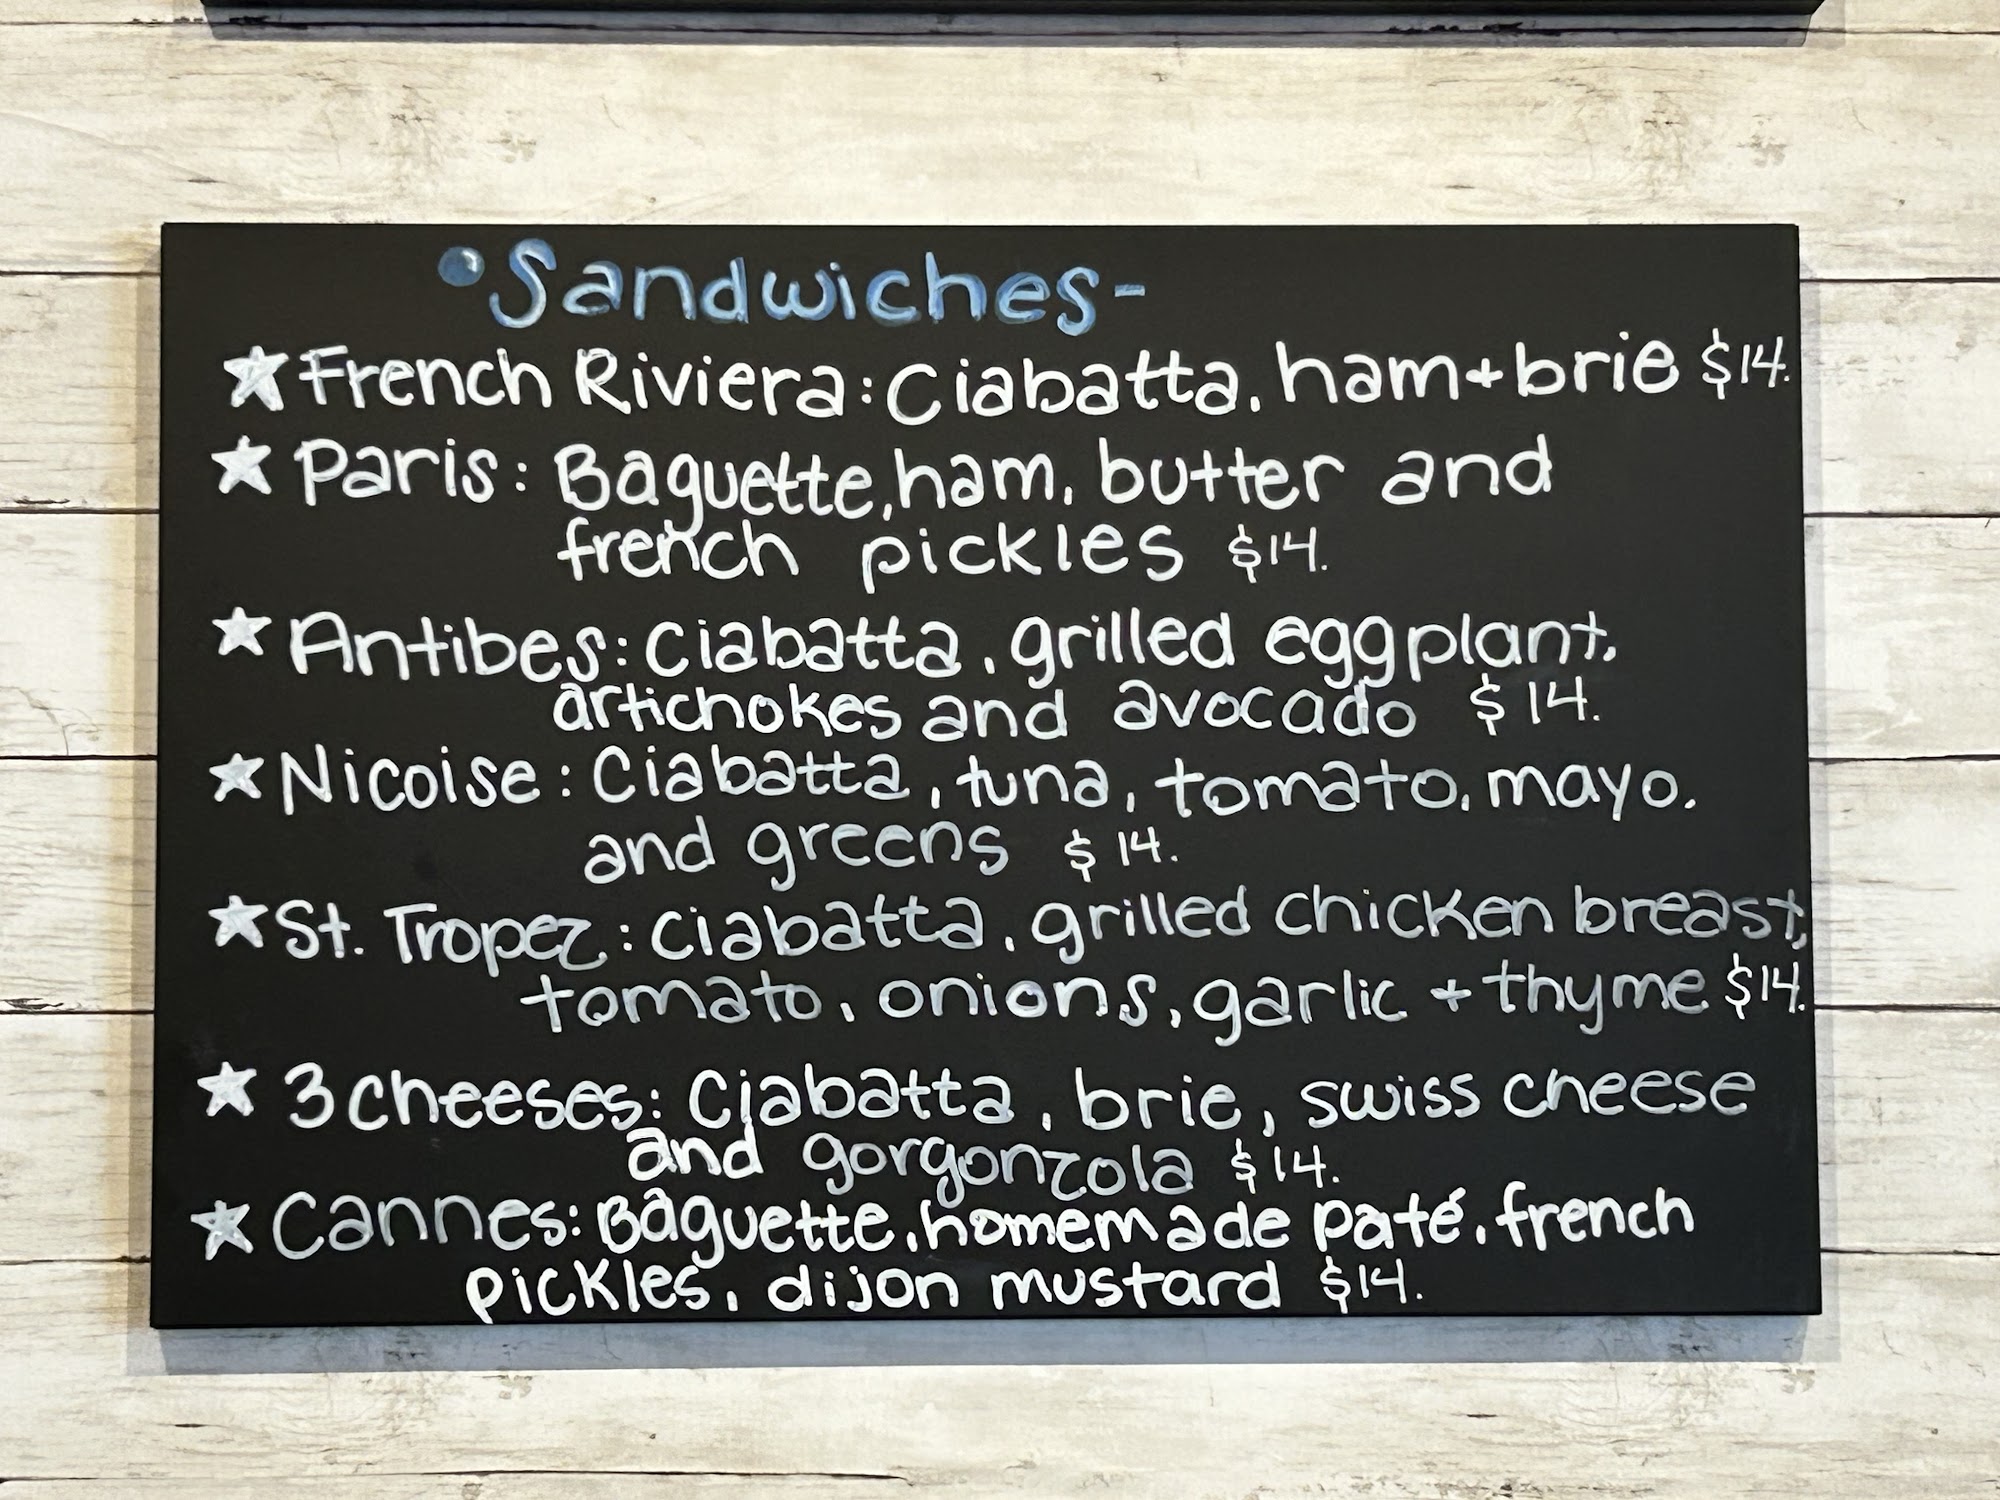 •Sandwiches-
★French Riviera: Ciabatta, ham+brie $14.
★Paris: Baguette, ham, butter and
french pickles $14.
★Antibes: Ciabatta, grilled eggplant,
artichokes and avocado $14.
★Nicoise: Ciabatta, tuna, tomato, mayo.
and greens $14.
★St. Tropez: Ciabatta, grilled chicken breast,
tomato, onions, garlic + thyme $14.
★3 cheeses: Ciabatta, brie, swiss cheese
and gorgonzola $14.
★Cannes: Baguette, homemade paté, french
pickles, dijon mustard $14.